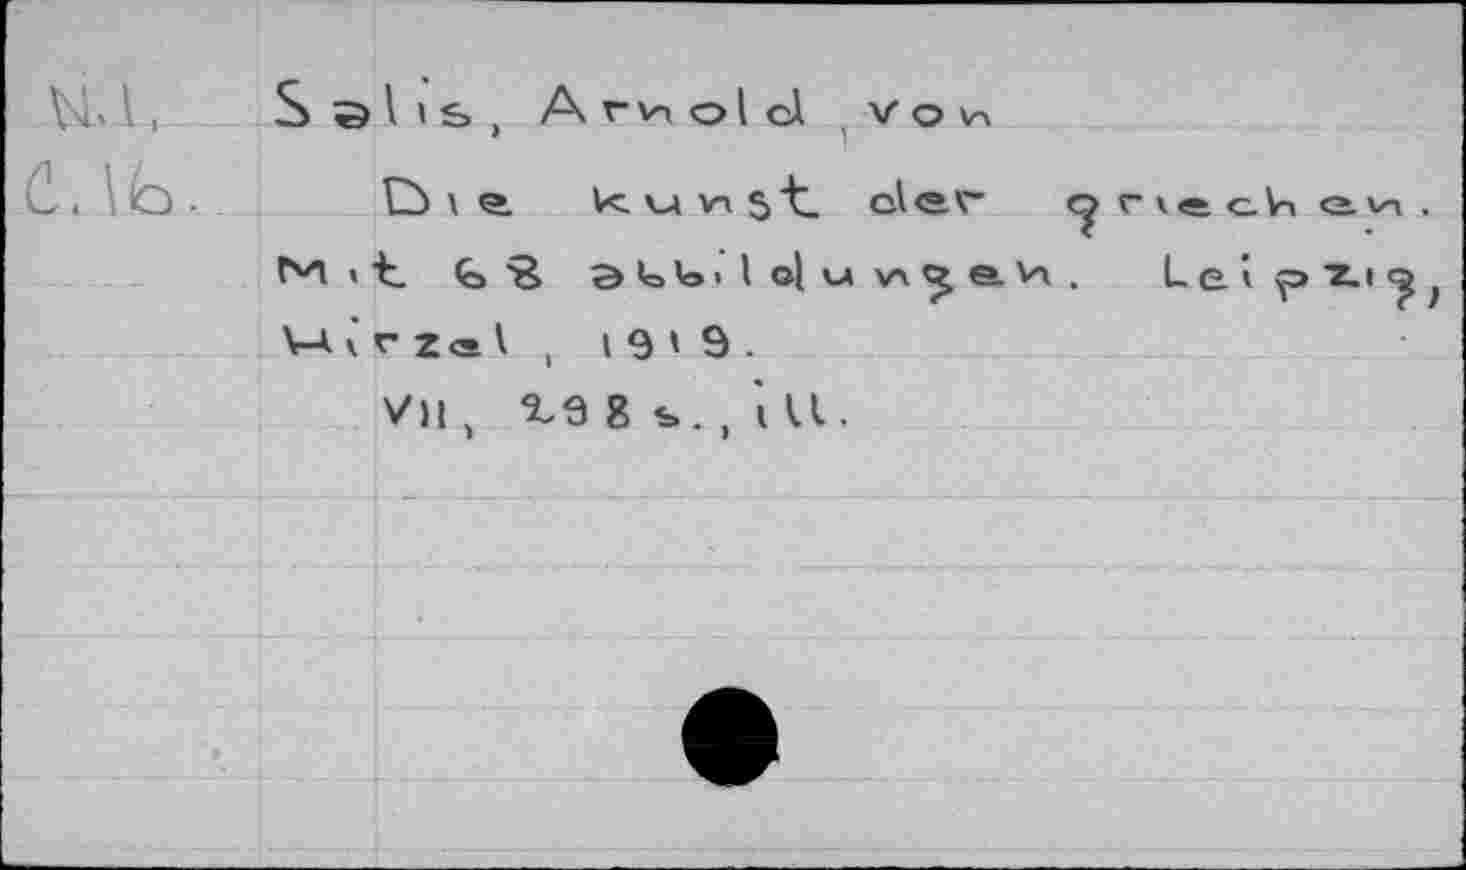 Salis, Arnold von
Die kunst der griechen.
Mit 68 abbildungen. Leipzig,
Hirzel, 1919.
VII, 298 s., ill.